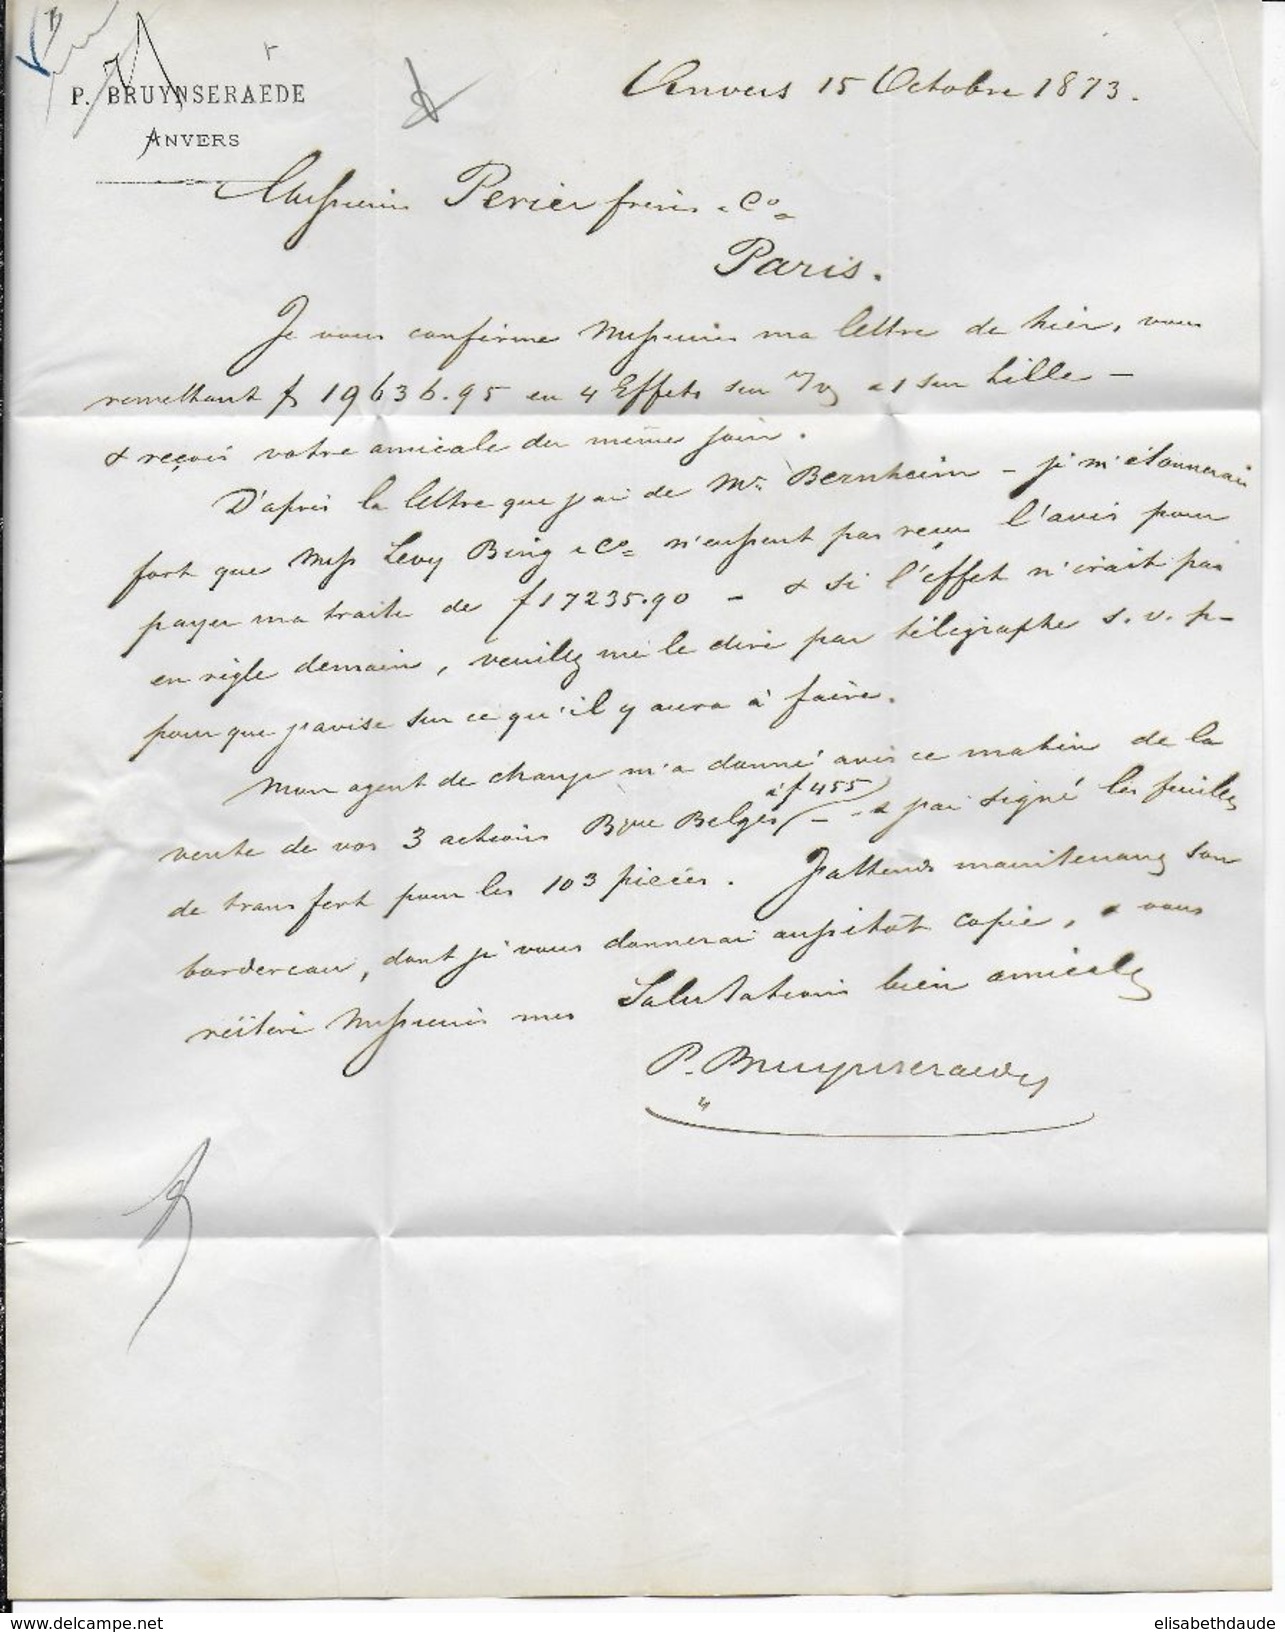 P. BRUYNSERAEDE
ANVERS
Anvers 15 Octobre 1873.
Messieurs Perier frères & Co
Paris.
Je vous confirme Messieurs ma lettre de hier, vous
remettant f 19636.95 en 4 Effets sur & 1 sur Lille —
& reçois votre amicale du même jour.
D'après la lettre que j'ai de Mr. Bernheim — je m'étonnerais
fort que Mess Levy Bing & Co n'eussent pas reçu l'avis pour
payer ma traite de f 17235.90 — & si l'effet n'était pas
en règle demain, veuillez me le dire par télégraphe s.v.p —
pour que j'avise sur ce qu'il y aura à faire.
Mon agent de change m'a donné avis ce matin de la
à f 455
vente de vos 3 actions Bque Belges — & j'ai signé les feuilles
de transfert pour les 103 pièces. J'attends maintenant son
bordereau, dont je vous donnerai aussitôt copie, & vous
réitère Messieurs mes Salutations bien amicales
P. Bruynseraede
delcampe.net
elisabethdaude